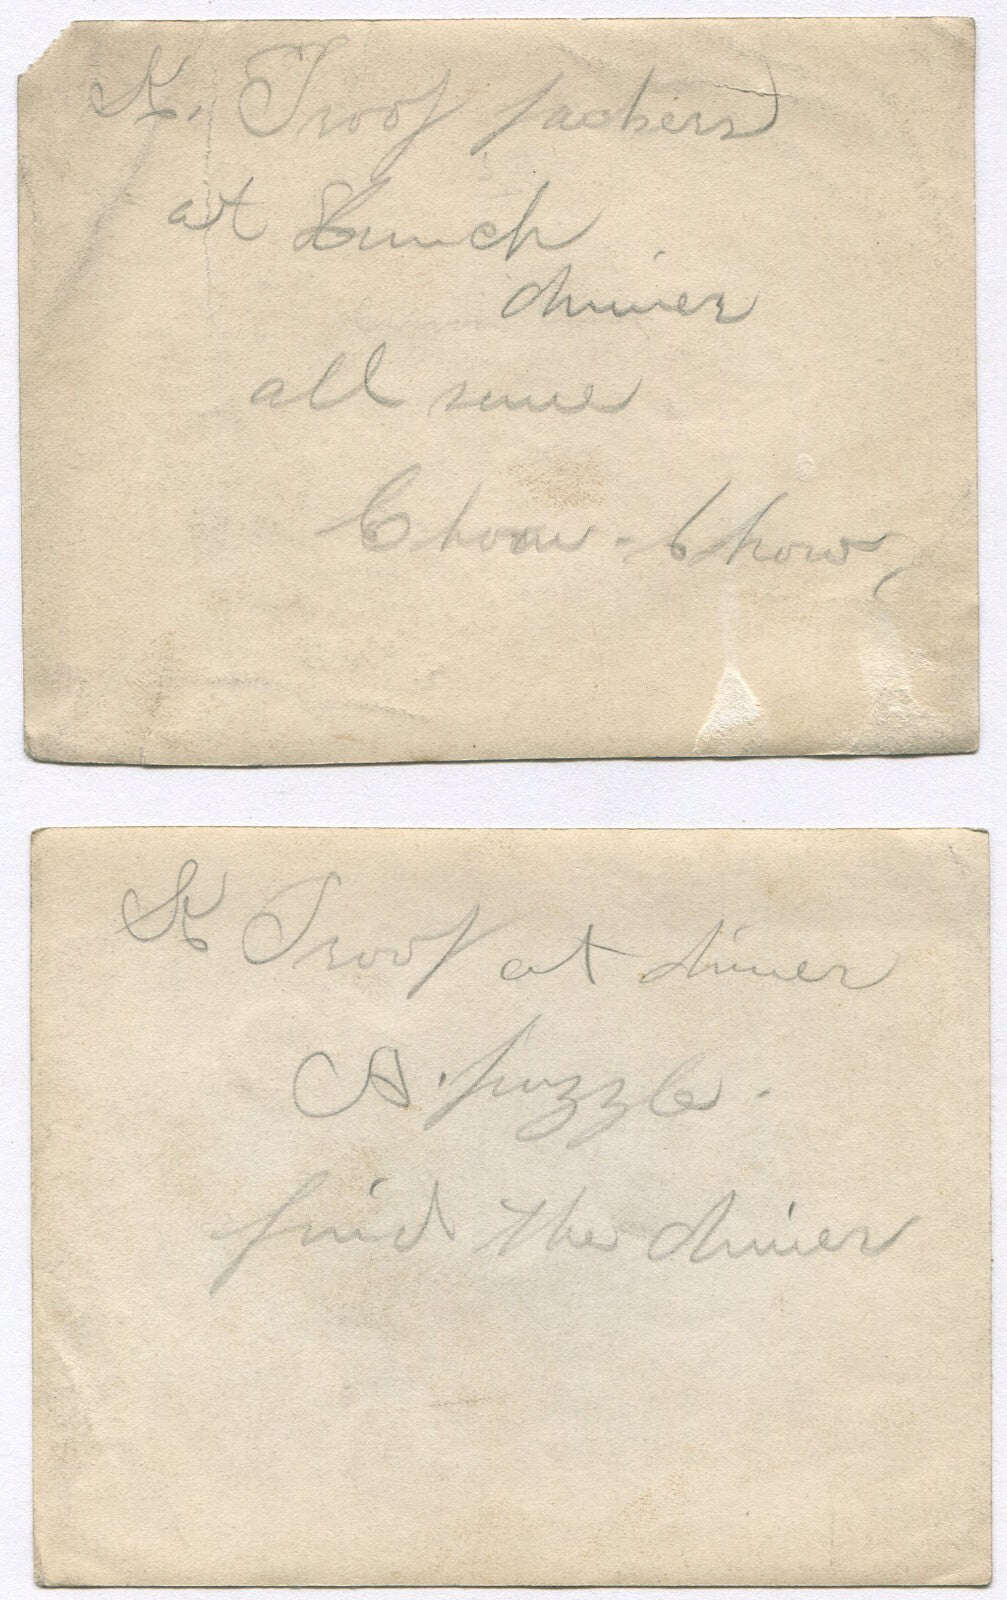 K. Troof packers
at Lunch
dinner
all same
Choow-Chow,
K Troof at dinner
A. puzzle.
find the dinner